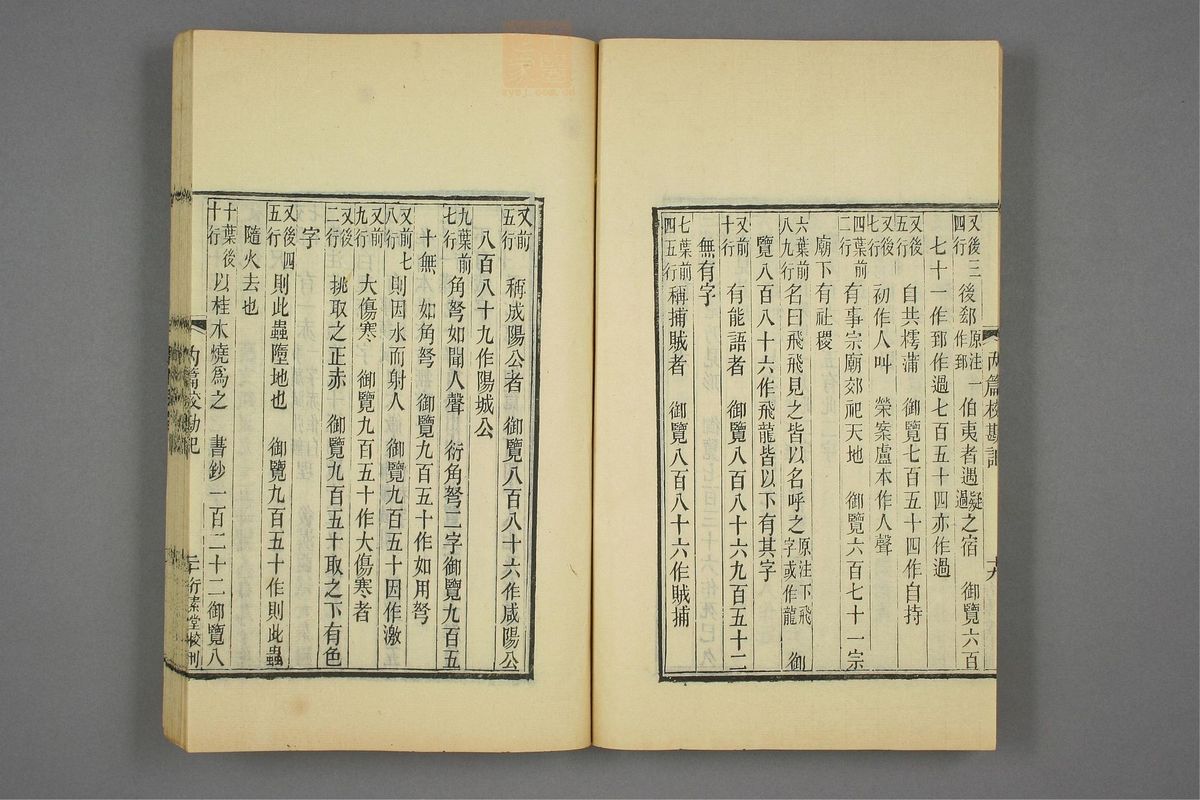 又後三四行 後郄原注一作郅 伯夷者遇疑過之宿 御覽六百
七十一作郅作過七百五十四亦作過
又後五行 自共樗蒲 御覽七百五十四作自持
又後七行 初作人叫 榮案盧本作人聲
四葉前二行 有事宗廟郊祀天地 御覽六百七十一宗
廟下有社稷
六葉前八九行 名曰飛飛見之皆以名呼之原注下飛字或作龍 御
覽八百八十六作飛龍皆以下有其字
又前十行 有能語者 御覽八百八十六九百五十二
無有字
七葉前四五行 稱捕賊者 御覽八百八十六作賊捕
內篇校勘記
又前五行 稱成陽公者 御覽八百八十六作咸陽公
八百八十九作陽城公
九葉前七行 角弩如聞人聲 衍角弩二字御覽九百五
十無 如角弩 御覽九百五十作如用弩
又前七八行 則因水而射人 御覽九百五十因作激
又前九行 大傷寒 御覽九百五十作大傷寒者
又後二行 挑取之正赤 御覽九百五十取之下有色
字
又後四五行 則此蟲墮地也 御覽九百五十作則此蟲
隨火去也
十葉後十行 以桂木燒爲之 書鈔一百二十二御覽八
內篇校勘記
平行素堂校刊